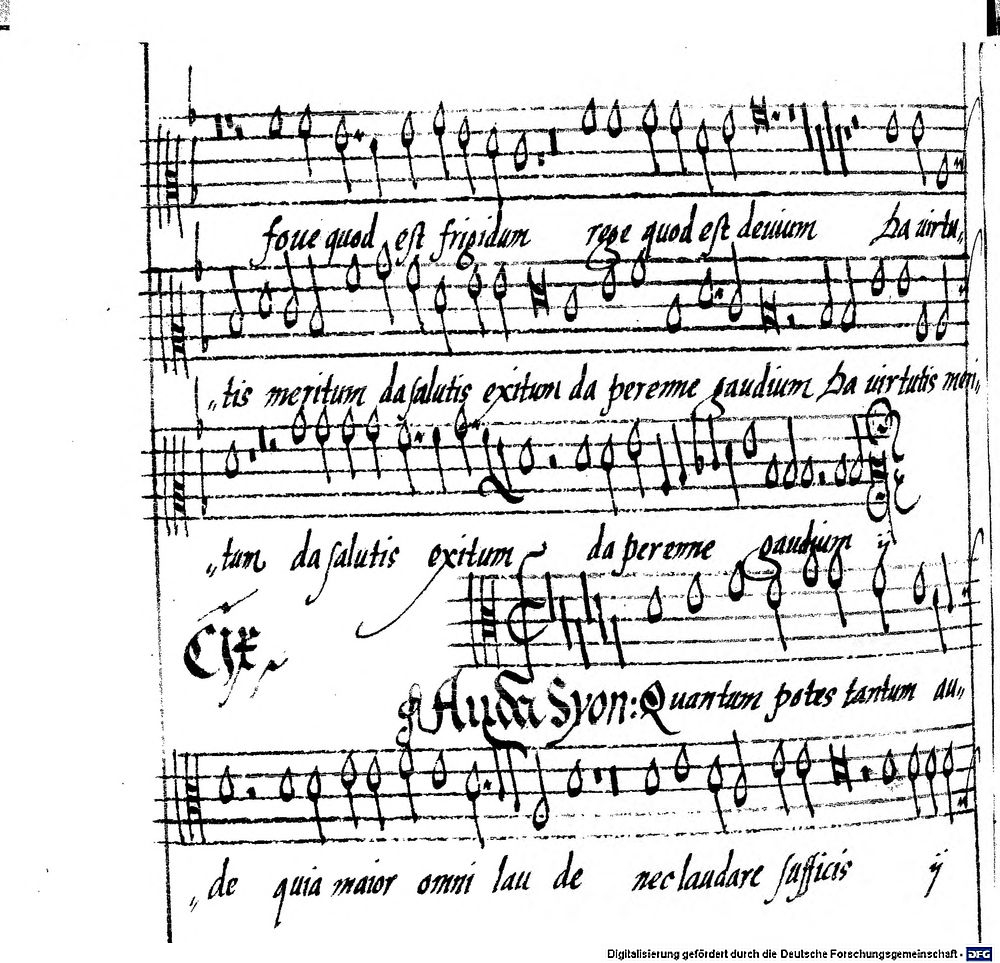 foue quod est frigidum rege quod est deuium Da uirtu„
„tis meritum da salutis exitum da perenne gaudium Da uirtutis meri„
„tum da salutis exitum da perenne gaudium ij
CIX
Lauda Syon: Quantum potes tantum au„
„de quia maior omni lau de nec laudare sufficis ij
Digitalisierung gefördert durch die Deutsche Forschungsgemeinschaft - DFG